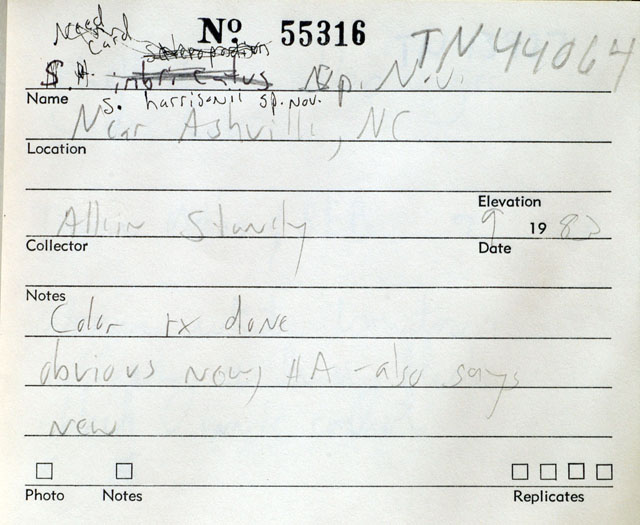 Need card
No 55316 TN 44064
S. H. Sp. Nov.
Name S. harrisonii sp. nov.
Near Ashville, NC
Location
Elevation
9 1983
Collector Date
Notes
Color rx done
obvious nov, HA - also says
new
Photo Notes Replicates